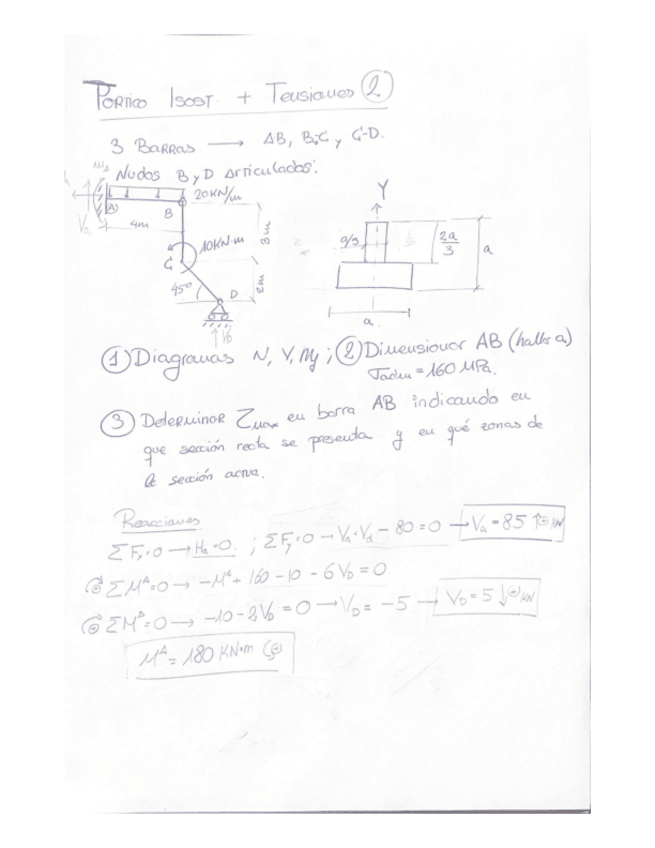 Pórtico Isost. + Tensiones 2
3 Barras → AB, B-C y C-D.
Nudos B y D Articulados:
20 KN/m
A
B
4m
3m
10KN·m
C
2m
45º
D
V_D
Y
a/3
2a/3
a
a
1 Diagramas N, V, My ; 2 Dimensionar AB (hallar a)
σadm = 160 MPa.
3 Determinar τmax en barra AB indicando en
que sección recta se presenta y en qué zonas de
la sección actúa.
Reacciones
ΣFx=0 → Ha=0. ; ΣFy=0 → Va+Vd - 80 = 0 → Va = 85 ↑⊕ KN
⊕ ΣM^A=0 → -M^A + 160 - 10 - 6V_D = 0
⊕ ΣM^B=0 → -10 - 2V_D = 0 → V_D = -5 → V_D = 5 ↓⊕ KN
M^A = 180 KN·m